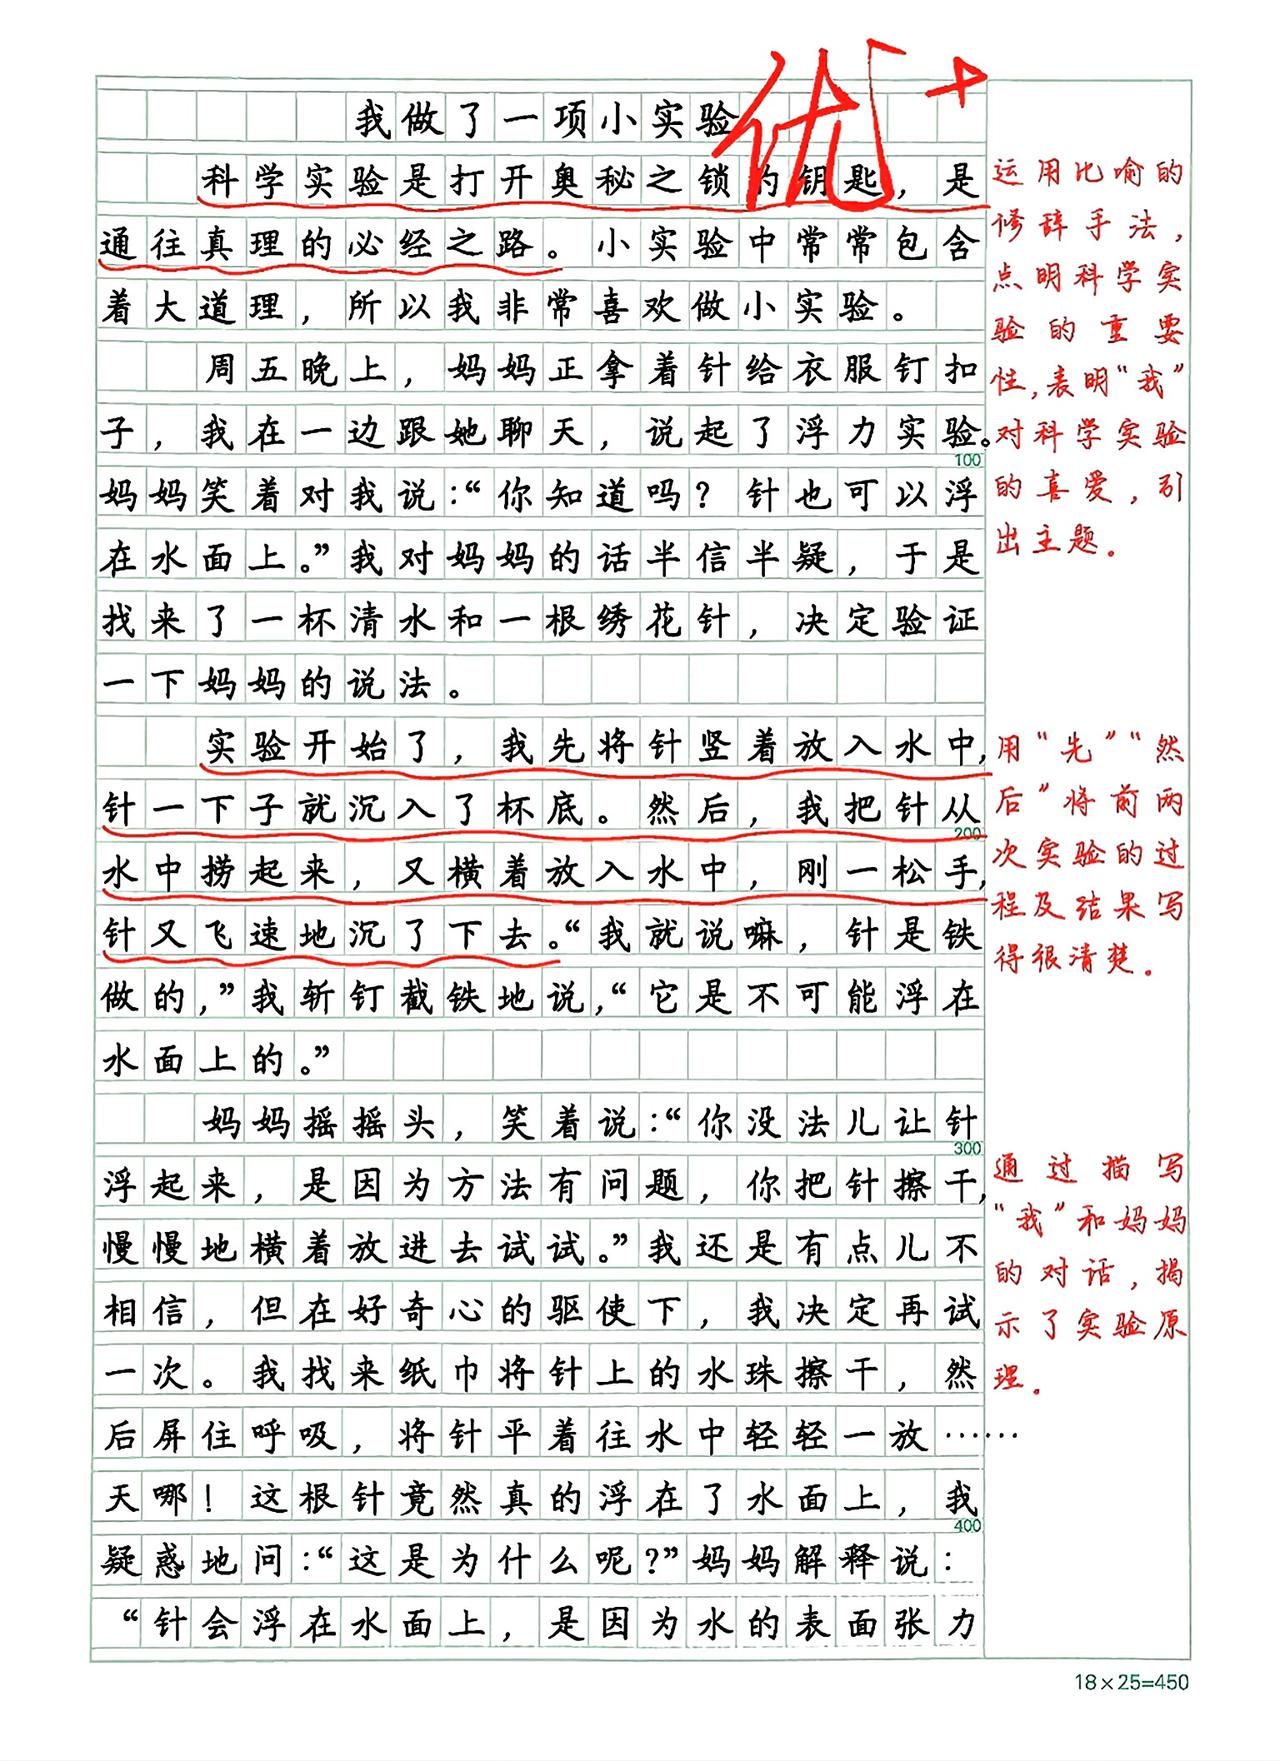 优+
我做了一项小实验
科学实验是打开奥秘之锁的钥匙，是
通往真理的必经之路。小实验中常常包含
着大道理，所以我非常喜欢做小实验。
周五晚上，妈妈正拿着针给衣服钉扣
子，我在一边跟她聊天，说起了浮力实验。
100
妈妈笑着对我说：“你知道吗？针也可以浮
在水面上。”我对妈妈的话半信半疑，于是
找来了一杯清水和一根绣花针，决定验证
一下妈妈的说法。
实验开始了，我先将针竖着放入水中，
针一下子就沉入了杯底。然后，我把针从
200
水中捞起来，又横着放入水中，刚一松手，
针又飞速地沉了下去。“我就说嘛，针是铁
做的，”我斩钉截铁地说，“它是不可能浮在
水面上的。”
妈妈摇摇头，笑着说：“你没法儿让针
300
浮起来，是因为方法有问题，你把针擦干，
慢慢地横着放进去试试。”我还是有点儿不
相信，但在好奇心的驱使下，我决定再试
一次。我找来纸巾将针上的水珠擦干，然
后屏住呼吸，将针平着往水中轻轻一放……
天哪！这根针竟然真的浮在了水面上，我
400
疑惑地问：“这是为什么呢？”妈妈解释说：
“针会浮在水面上，是因为水的表面张力
运用比喻的
修辞手法，
点明科学实
验的重要
性，表明“我”
对科学实验
的喜爱，引
出主题。
用“先”“然
后”将前两
次实验的过
程及结果写
得很清楚。
通过描写
“我”和妈妈
的对话，揭
示了实验原
理。
18×25=450